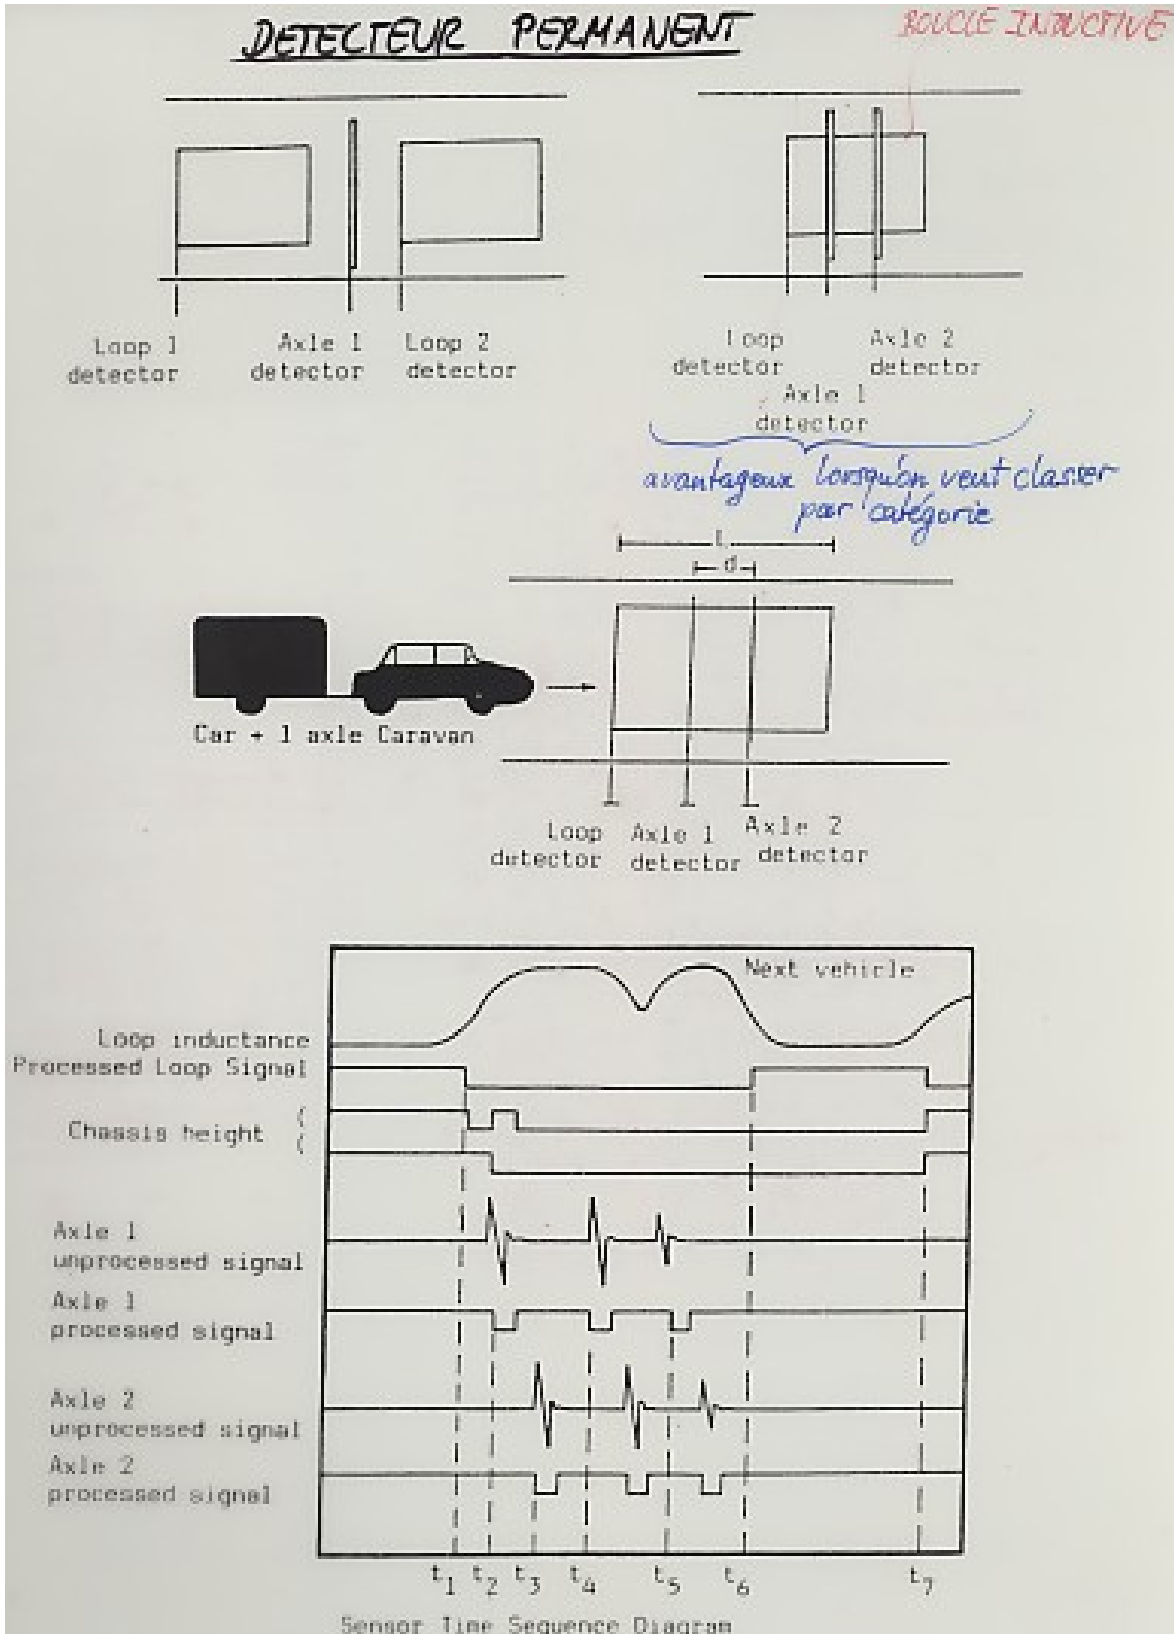 DETECTEUR PERMANENT
BOUCLE INDUCTIVE
Loop 1
detector
Axle 1
detector
Loop 2
detector
Loop
detector
Axle 2
detector
Axle 1
detector
avantageux lorsqu'on veut classer
par catégorie
L
d
Car + 1 axle Caravan
Loop
detector
Axle 1
detector
Axle 2
detector
Next vehicle
Loop inductance
Processed Loop Signal
Chassis height
(
(
Axle 1
unprocessed signal
Axle 1
processed signal
Axle 2
unprocessed signal
Axle 2
processed signal
t1 t2 t3 t4 t5 t6 t7
Sensor Time Sequence Diagram